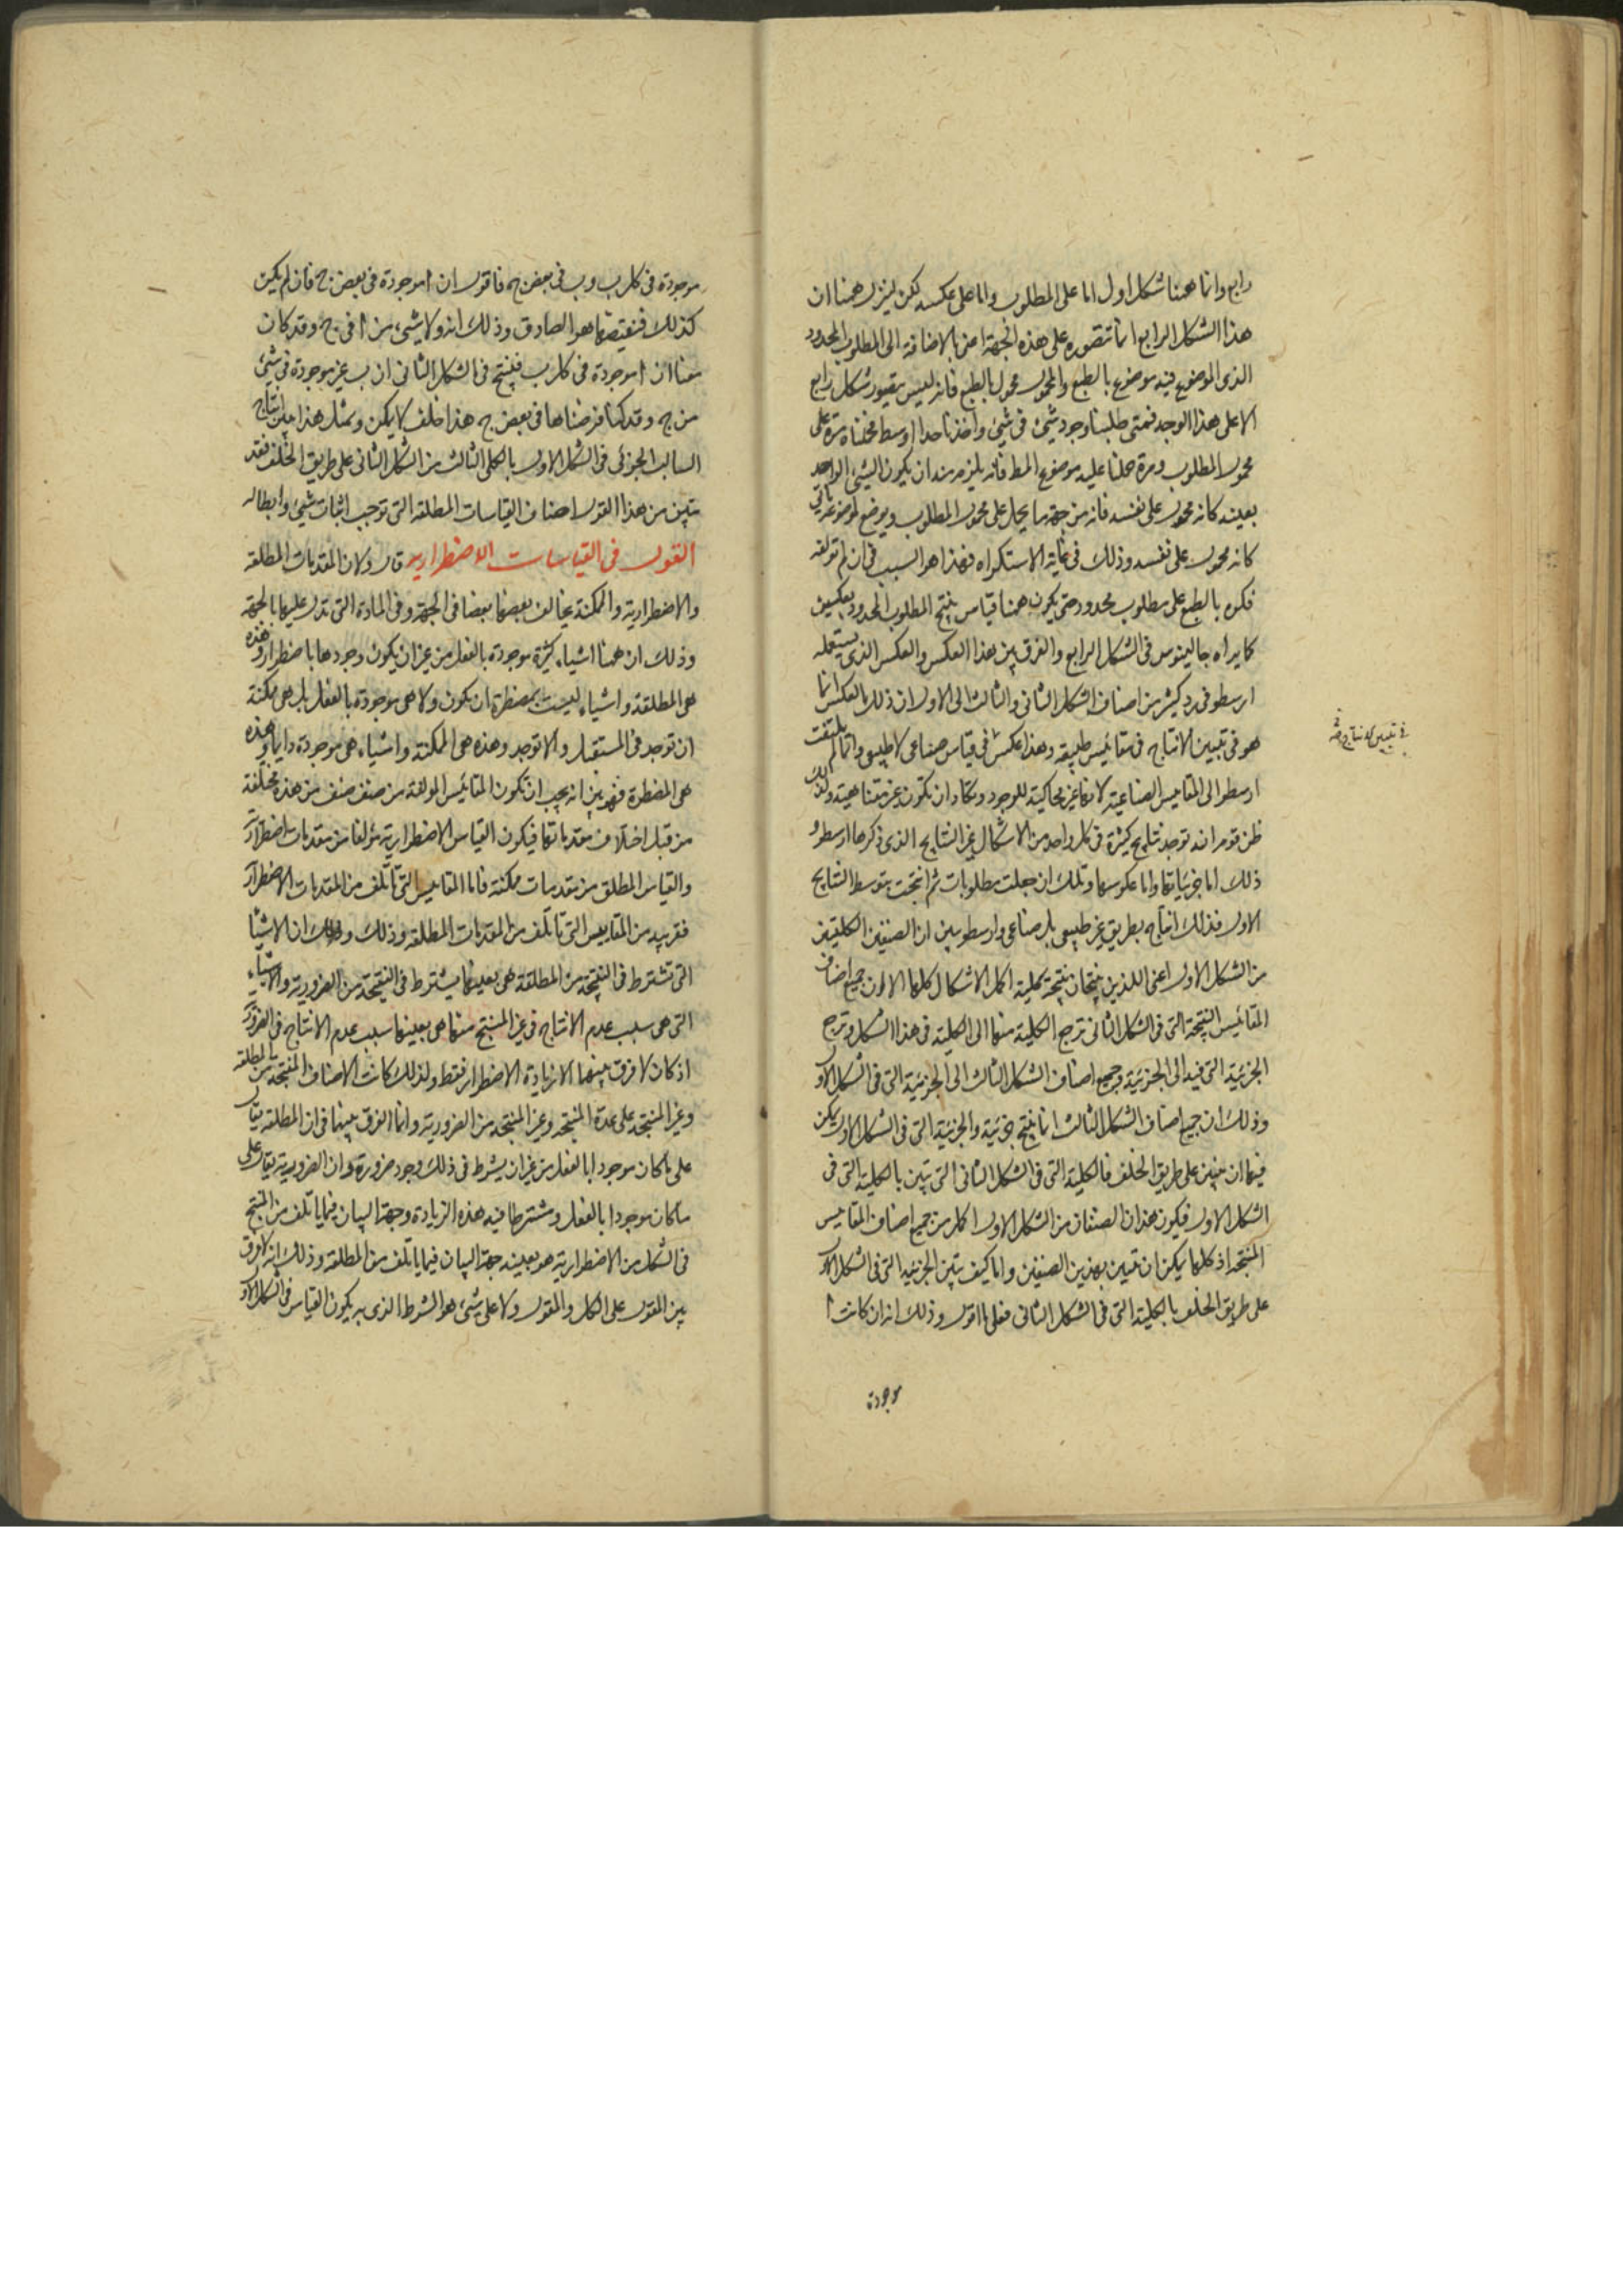 رابع وانما ههنا شكل اول اما على المطلوب واما على عكسه لكن لينزل ههنا ان
هذا الشكل الرابع انما نتصوره على هذه الجهة اعنى بالاضافة الى المطلوب المحدود
الذى الموضوع فيه موضوع بالطبع والمحمول محمول بالطبع فانه ليس يتصور شكل رابع
الا على هذا الوجه فمتى طلبنا وجود شىء فى شىء واخذنا حدا اوسط فحملناه مرة على
محمول المطلوب ومرة حملنا عليه موضوع المط فانه يلزم منه ان يكون الشىء الواحد
بعينه كانه محمول على نفسه فانه من جهة ما يحمل على محمول المطلوب ويوضع لموضوعه ياتى
كانه محمول على نفسه وذلك فى غاية الاستكراه فهذا هو السبب فى ان لم تولفه
فكره بالطبع على مطلوب محدود حتى يكون ههنا قياس ينتج المطلوب المحدود بعكسين
كما يراه جالينوس فى الشكل الرابع والفرق بين هذا العكس والعكس الذى يستعمله
ارسطو فى رد كثير من اصناف الشكل الثانى والثالث الى الاول ان ذلك العكس انما
هو فى تبيين الانتاج فى مقائيس طبيعة وهذا عكس فى قياس صناعى لا طبيعى وانما لم يلتفت
ارسطو الى المقاييس الصناعية لانها غير محاكية للوجود وتكاد ان تكون غير متناهية ولذلك
ظن قوم انه توجد نتايج كثيرة فى كل واحد من الاشكال غير النتايج الذى ذكرها ارسطو و
ذلك اما جزئياتها واما عكوسها وتلك ان جعلت مطلوبات ثم انتجت بتوسط النتايج
الاول فذلك انتاج بطريق غير طبيعى بل صناعى وارسطو يبين ان الصنفين الكليين
من الشكل الاول اعنى اللذين ينتجان نتيجة كلية اكمل الاشكال كلها الا ان جميع اصناف
المقائيس النتيجة التى فى الشكل الثانى ترجع الكلية منها الى الكلية فى هذا الشكل وترجع
الجزئية التى فيه الى الجزئية وجميع اصناف الشكل الثالث الى الجزئية التى فى الشكل الاول
وذلك ان جميع اصناف الشكل الثالث انما ينتج جزئية والجزئية التى فى الشكل الاول يمكن
فيها ان يبين على طريق الخلف فالكلية التى فى الشكل الثانى التى تبين بالكلية التى فى
الشكل الاول فيكون هذان الصنفان من الشكل الاول اكمل من جميع اصناف المقاييس
المنتجة اذ كلها يمكن ان تتبين بهذين الصنفين واما كيف تبين الجزئية التى فى الشكل الاول
على طريق الخلف بالكلية التى فى الشكل الثانى فعلى ما اقول وذلك انه ان كانت ا
موجودة
موجودة فى كل ب وب فى بعض ج فاقول ان ا موجودة فى بعض ج فان لم يكن
كذلك فنقيضها هو الصادق وذلك انه ولا شىء من ا فى ج وقد كان
معنا ان ا موجودة فى كل ب فينتج فى الشكل الثانى ان ب غير موجودة فى شىء
من ج وقد كنا فرضناها فى بعض ج هذا خلف لا يمكن وبمثل هذا يبين انتاج
السالب الجزئى فى الشكل الاول بالكلى الثالث من الشكل الثانى على طريق الخلف فقد
تبين من هذا القول اصناف القياسات المطلقة التى توجب اثبات شىء وابطاله
القول فى القياسات الاضطرارية قال ولان المقدمات المطلقة
والاضطرارية والممكنة يخالف بعضها بعضا فى الجهة وفى المادة التى تدل عليها بالجهة
وذلك ان ههنا اشياء كثيرة موجودة بالفعل من غير ان يكون وجودها باضطرار وهذه
هى المطلقة واشياء ليست بمضطرة ان تكون ولا هى موجودة بالفعل بل هى ممكنة
ان توجد فى المستقبل والا توجد وهذه هى الممكنة واشياء هى موجودة دايما وهذه
هى المضطرة فهو بين انه يجب ان تكون المقائيس المولفة من صنف صنف من هذه مختلفة
من قبل اختلاف مقدماتها فيكون القياس الاضطرارية مؤلفا من مقدمات اضطرارية
والقياس المطلق من مقدمات ممكنة فاما المقاييس التى تاتلف من المقدمات الاضطرارية
فقريبة من المقاييس التى تاتلف من المقدمات المطلقة وذلك ان الاشيا
التى تشترط فى النتيجة من المطلقة هى بعينها يشترط فى النتيجة من الضرورية والاشياء
التى هى سبب عدم الانتاج فى غير المنتج منها هى بعينها سبب عدم الانتاج فى الضرورية
اذ كان لا فرق بينهما الا زيادة الاضطرار فقط ولذلك كانت الاصناف المنتجة من المطلقة
وغير المنتجة على عدة المنتجة وغير المنتجة من الضرورية وانما الفرق بينها فى ان المطلقة يقال
على ما كان موجودا بالفعل من غير ان يشرط فى ذلك وجود ضرورة وان الضرورية يقال على
ما كان موجودا بالفعل ومشترطا فيه هذه الزيادة وجهة البيان فيما ياتلف من المنتج
فى الشكل من الاضطرارية هو بعينه جهة البيان فيما ياتلف من المطلقة وذلك انه لا فرق
بين المقول على الكل والمقول ولا على شىء هو الشرط الذى به يكون القياس فى الشكل الاول